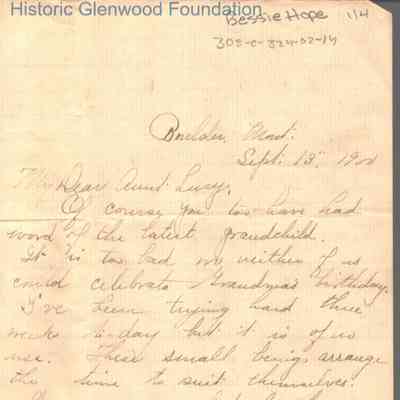 Historic Glenwood Foundation
Bessie Hope 1/4
305-C-324-02-14
Boulder, Mont.
Sept. 13, 1900
My Dear Aunt Lucy,
Of course you too have had
word of the latest grandchild.
It is too bad we neither of us
could celebrate Grandma's birthday.
I've been trying hard three
weeks to-day but it is of no
use. These small beings arrange
the time to suit themselves.